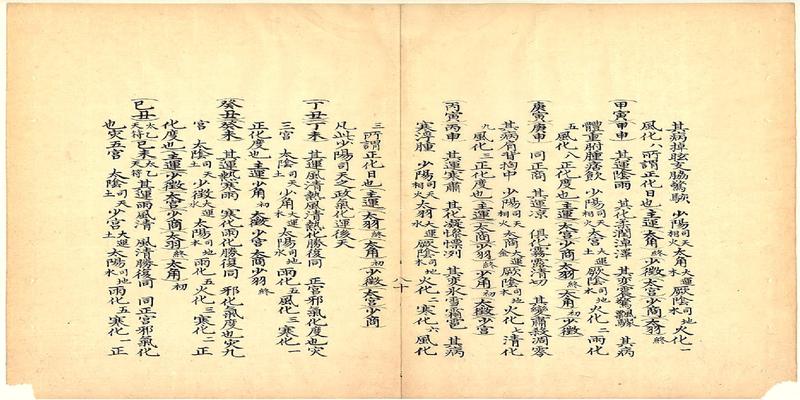 其病掉眩支脇驚駭 少陽司天相火 太角大運木 厥陰司地木 火化二
風化八所謂正化日也主運太角初少徵太宮少商太羽終
甲寅甲申 其運陰雨 其化柔潤淖澤 其變震驚飄驟 其病
體重胕腫痞飲 少陽司天相火 太宮大運土 厥陰司地木 火化二雨化
五風化八正化度也主運太宮少商太羽終太角初少徵
庚寅庚申 同正商 其運凉 其化霧露清切 其變肅殺凋零
其病肩背胸中 少陽司天相火 太商大運金 厥陰司地木 火化七清化
九風化三正化度也主運太商少羽終少角初太徵少宮
丙寅丙申 其運寒肅 其化凝慘凓冽 其變氷雪霜雹 其病
寒浮腫 少陽司天相火 太羽大運水 厥陰司地木 火化二寒化六風化
八十
三所謂正化日也主運太羽終太角初少徵太宮少商
凡此少陽司天之政氣化運後天
丁丑丁未 其運風清熱風清熱化勝復同 正宮邪氣化度也灾
三宮 太陰司天土 少角大運木 太陽司地水 雨化五風化三寒化一
正化度也主運少角初太徵少宮太商少羽終
癸丑癸未 其運熱寒雨 寒化雨化勝復同 邪化氣度也灾九
宮 太陰司天土 少徵大運火 太陽司地水 雨化五火化二寒化一正
化度也主運少徵太宮少商太羽終太角初
己丑太乙天符己未太乙天符其運雨風清 風清勝復同 同正宮邪氣化
也灾五宮 太陰司天土 少宮大運土 太陽司地水 雨化五寒化一正